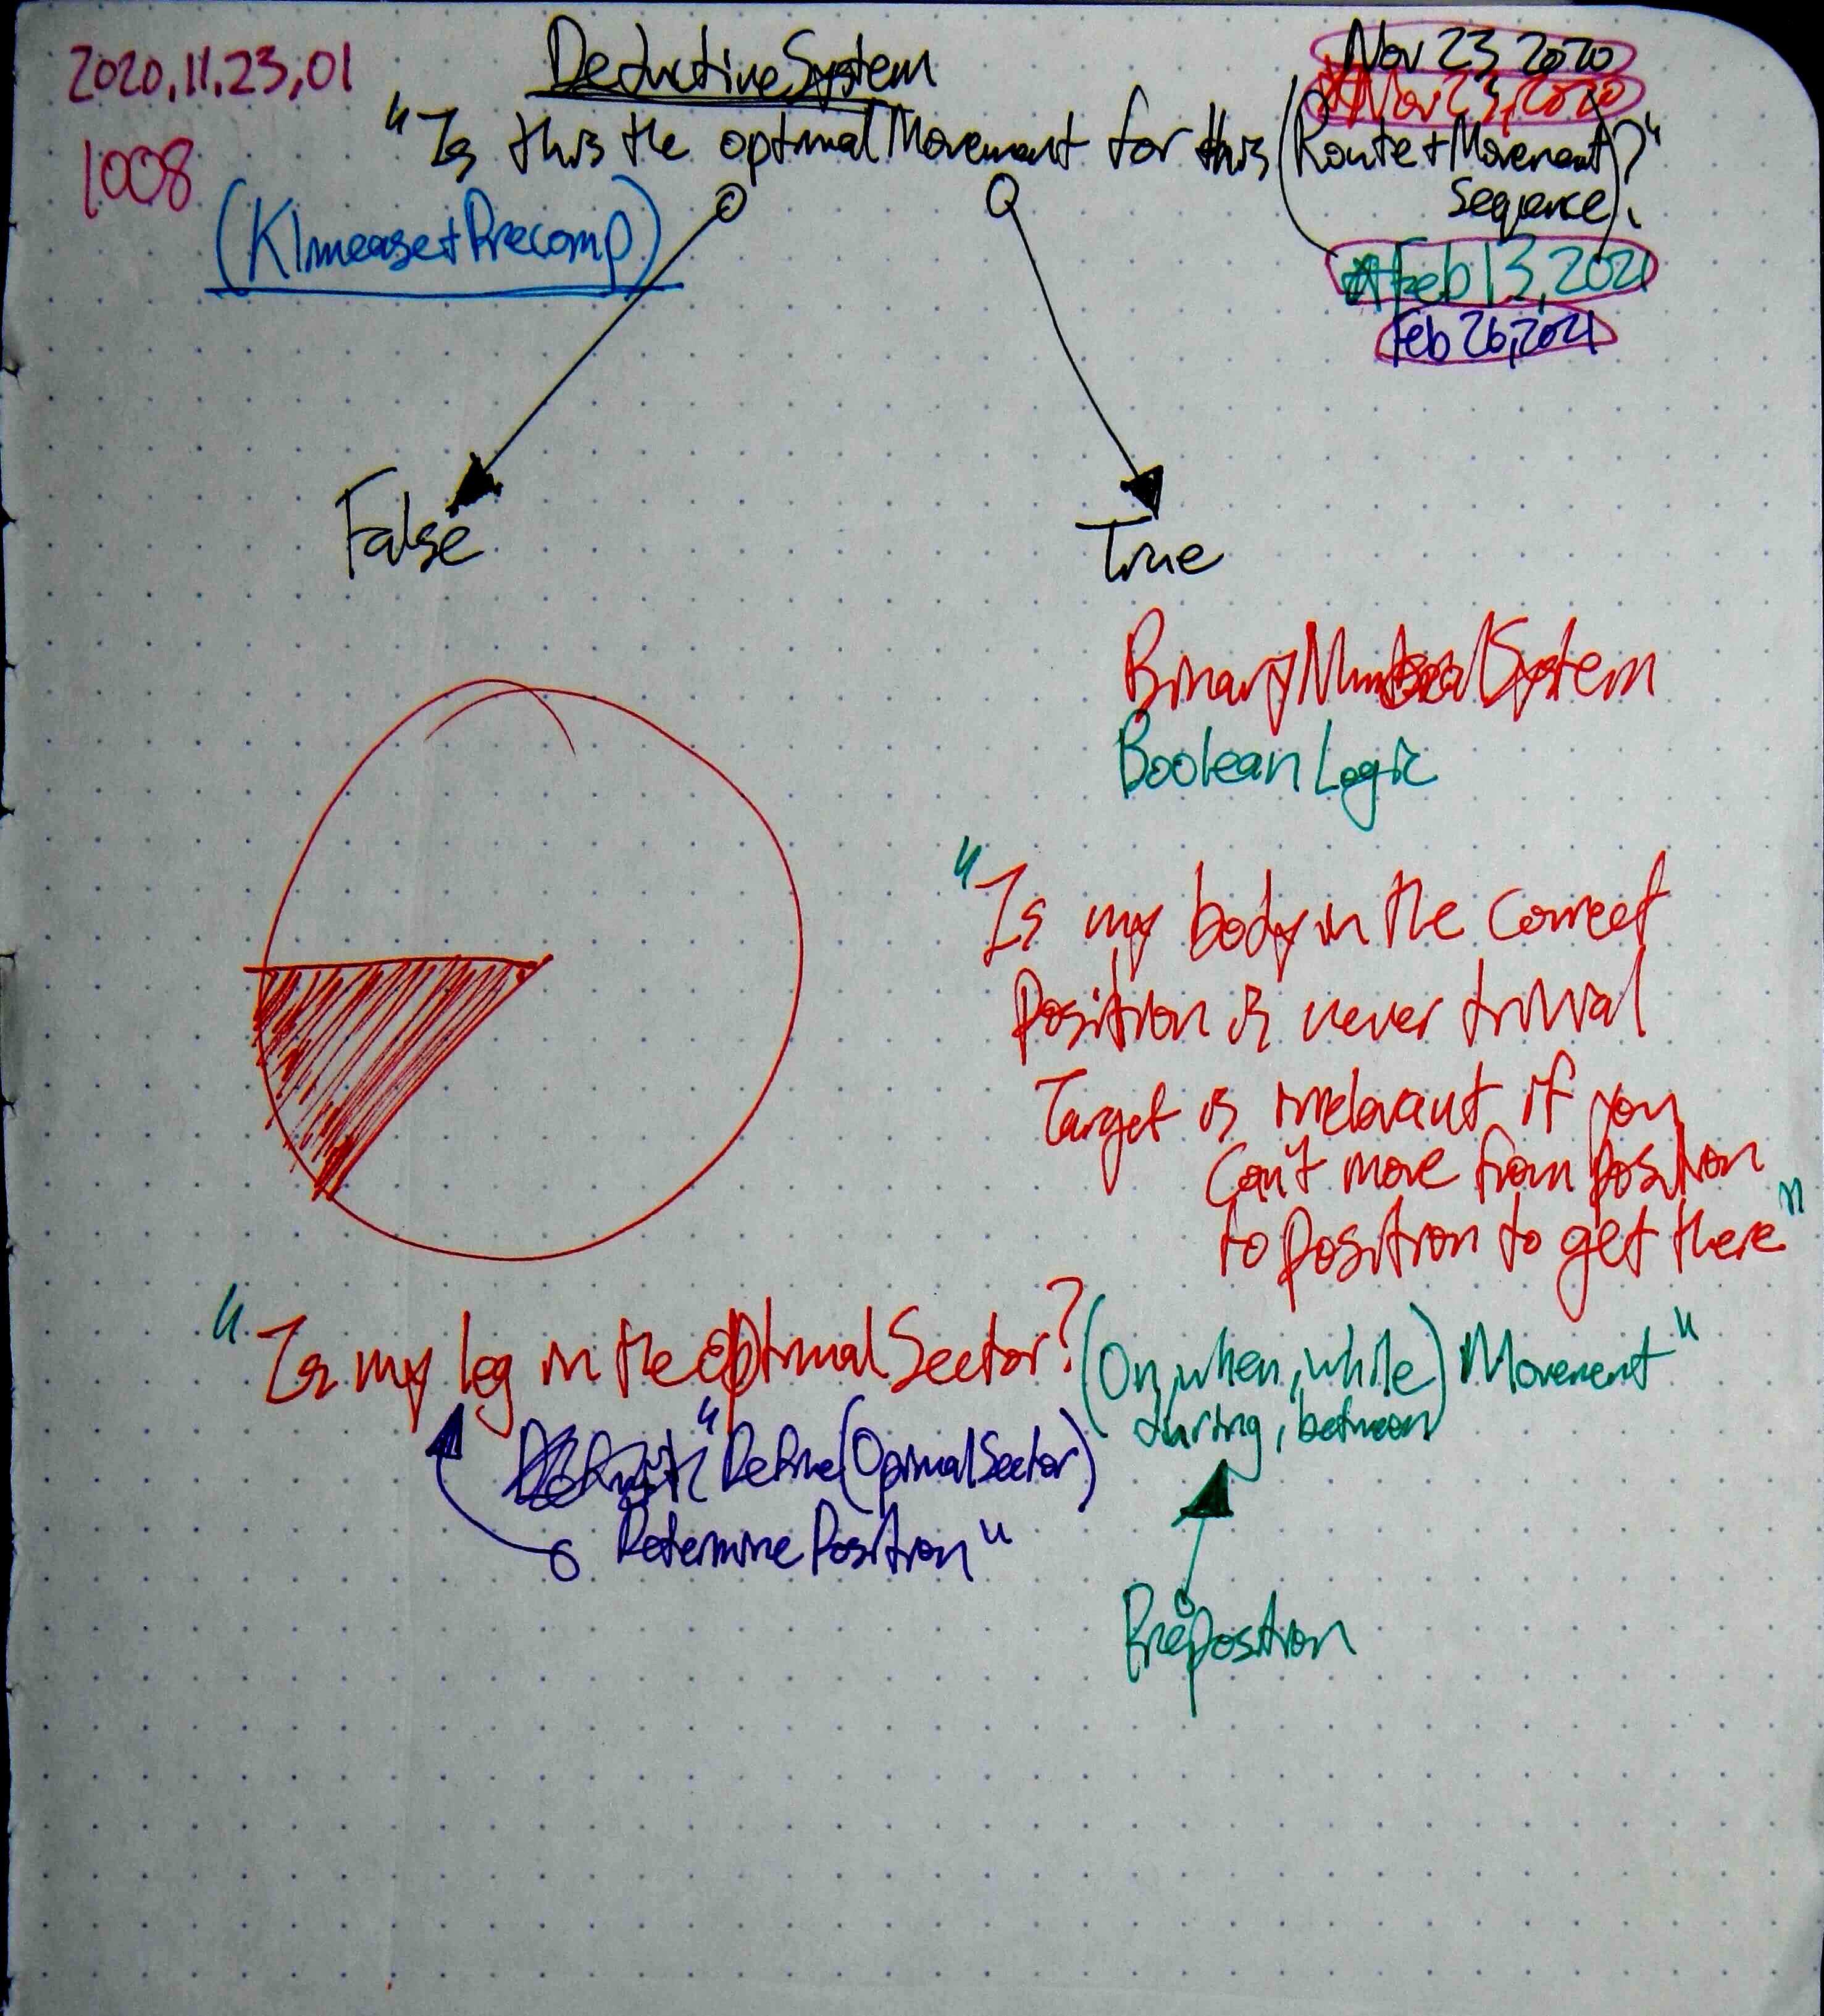 2020.11.23,01
1008
DeductiveSystem
Nov 23 2020
Nov 23, 2020
"Is this the optimalMovement for this (Route+Movement)?"
Sequence
(Klmease+Precomp)
Feb 13, 2021
Feb 26, 2021
False
True
BinaryNumberSystem
BooleanLogic
"Is my body in the correct
Position is never trivial
Target is irrelevant if you
Can't move from position
to position to get there"
"Is my leg in the optimalSector? (On, when, while) Movement"
during, between
"Define(OptimalSector)
DeterminePosition"
Preposition